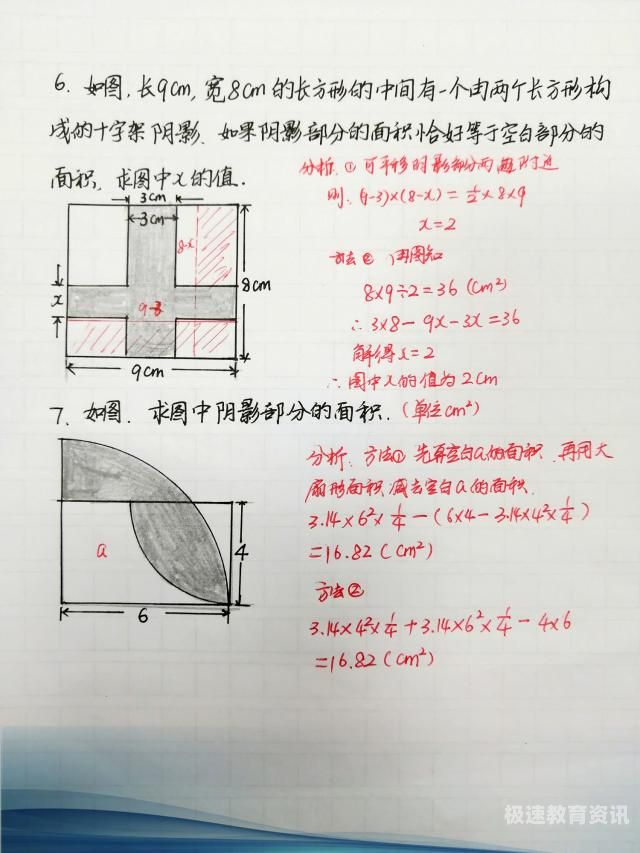 6. 如图,长9cm,宽8cm的长方形的中间有一个由两个长方形构
成的十字架阴影.如果阴影部分的面积恰好等于空白部分的
面积,求图中x的值.
分析.①可平移阴影部分两
则:(9-3)×(8-x)=½×8×9
x=2
方法② 由图知
8×9÷2=36 (cm²)
∴3×8-9x-3x=36
解得x=2
∴图中x的值为2cm
3cm
3cm
8-x
8cm
x
9-3
9cm
7. 如图.求图中阴影部分的面积.(单位cm²)
分析.方法①先算空白a的面积.再用大
扇形面积减去空白a的面积.
3.14×6²×¼-(6×4-3.14×4²×¼)
=16.82(cm²)
方法②
3.14×4²×¼+3.14×6²×¼-4×6
=16.82(cm²)
a
4
6
极速教育资讯